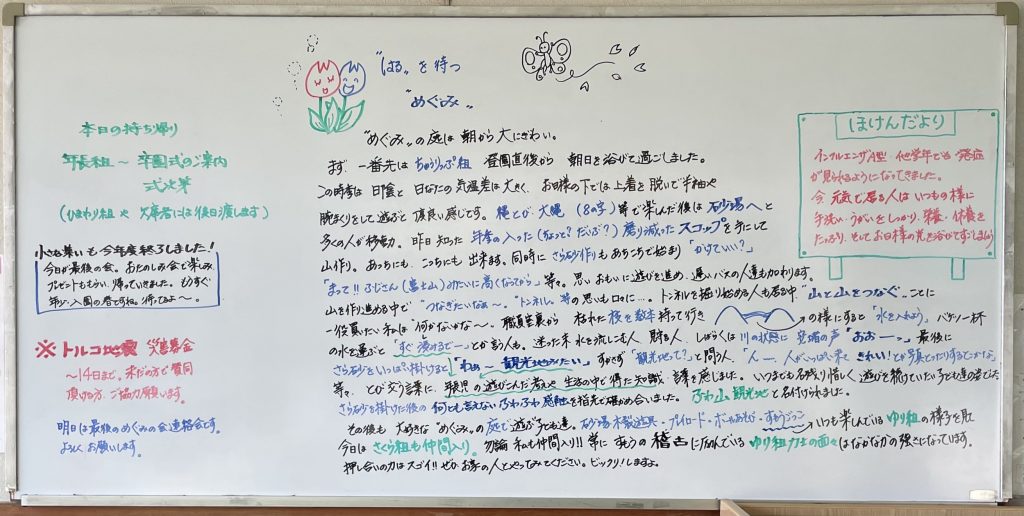 本日の持ち帰り
年長組～卒園式のご案内
式次第
(ひまわり組や欠席者には後日渡します)
小さな集いも今年度終了しました!
今日が最後の会。おたのしみ会で楽しみ
プレゼントももらい、帰っていきました。もうすぐ
年少入園の皆ですね。待ってるよ～。
※トルコ地震 災害募金
～14日まで。未だの方で賛同
頂ける方、ご協力願います。
明日は最後のめぐみの会連絡会です。
よろしくお願いします。
"はる"を待つ
"めぐみ"
"めぐみ"の庭は朝から大にぎわい。
まず、一番先はちゅうりっぷ組 登園直後から 朝日を浴びて過ごしました。
この時季は日陰と日なたの気温差は大きく、お日様の下では上着を脱いで半袖や
腕まくりをして遊ぶと丁度良い感じです。縄とび・大縄(8の字)等で楽んだ後は砂場へと
多くの人が移動。昨日知った年季の入った(ちょっと?だいぶ?)磨り減ったスコップを手にして
山作り。あっちにも、こっちにも出来ます。同時にさら砂作りもあちこちで始まり「かけていい?」
「まって!!ふじさん(富士山)みたいに高くなってから」等々。思いおもいに遊びを進め、遅いバスの人達も加わります。
山を作り進める中で"つなぎたいなぁ～。""トンネル。等の思いも口々に…。トンネルを掘り始める人も居る中"山と山をつなぐ"ことに
一役買いたい私は「何かないかな～。職員室裏から枯れた枝を数本持って行き の様にすると「水を入れよう」バケツ一杯
の水を運ぶと「すぐ溶けるでー」とか言う人も。迷った末水を流しこむ人 財る人。しばらくは川の状態に 登場の声「おおー」。最後に
さら砂をいっぱい掛けると「わぁー観光地みたい」すかさず「観光地って?」と問う人。「人ー、人がいっぱい来て きれい!とか写真とったりするとかな」
等々、とび交う言葉に、年長児の遊びこんだ考えや生活の中で得た知識・言葉を感じました。いつまでも名残り惜しく遊びを続けていた子ども達の姿でした。
さら砂を掛けた後の何とも言えないふわふわ感触を指先で確かめ合いました。ふわ山観光地と名付けられました。
その後も大好きな"めぐみ"の庭で遊ぶ子ども達。砂場・木製遊具・プレイロード・ボールあそび・すもうごっこ いつも楽んでいるゆり組の様子を見
今日はさくら組も仲間入り。勿論 私も仲間入り!!常に すもうの稽古に励んでいるゆり組力士の面々はなかなかの強さになっています。
押し合いの力はスゴイ!!ぜひお家の人とやってみてください。ビックリ!しますよ。
ほけんだより
インフルエンザB型・他学年でも発症
が見られるようになってきました。
今、元気で居る人はいつもの様に
手洗い・うがいをしっかり、栄養・休養を
たっぷり、そしてお日様の光を浴びてすごしましょう